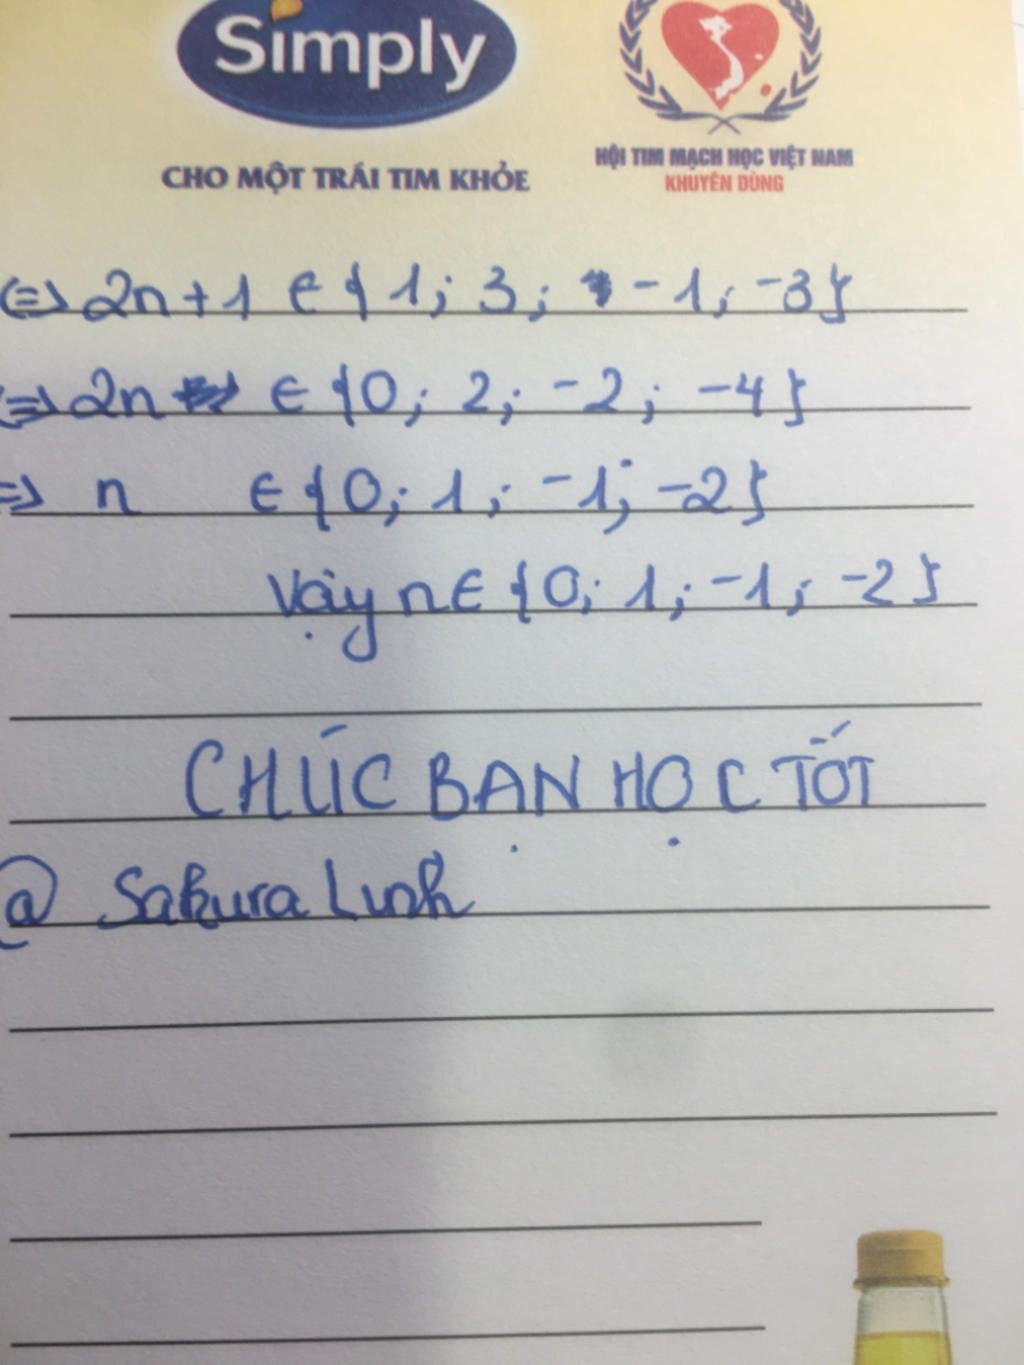 Simply
CHO MỘT TRÁI TIM KHỎE
HỘI TIM MẠCH HỌC VIỆT NAM
KHUYÊN DÙNG
<=> 2n + 1 ∈ { 1; 3; -1; -3}
<=> 2n ∈ {0; 2; -2; -4}
=> n ∈ {0; 1; -1; -2}
Vậy n ∈ {0; 1; -1; -2}
CHÚC BẠN HỌC TỐT
@ Sakura Linh